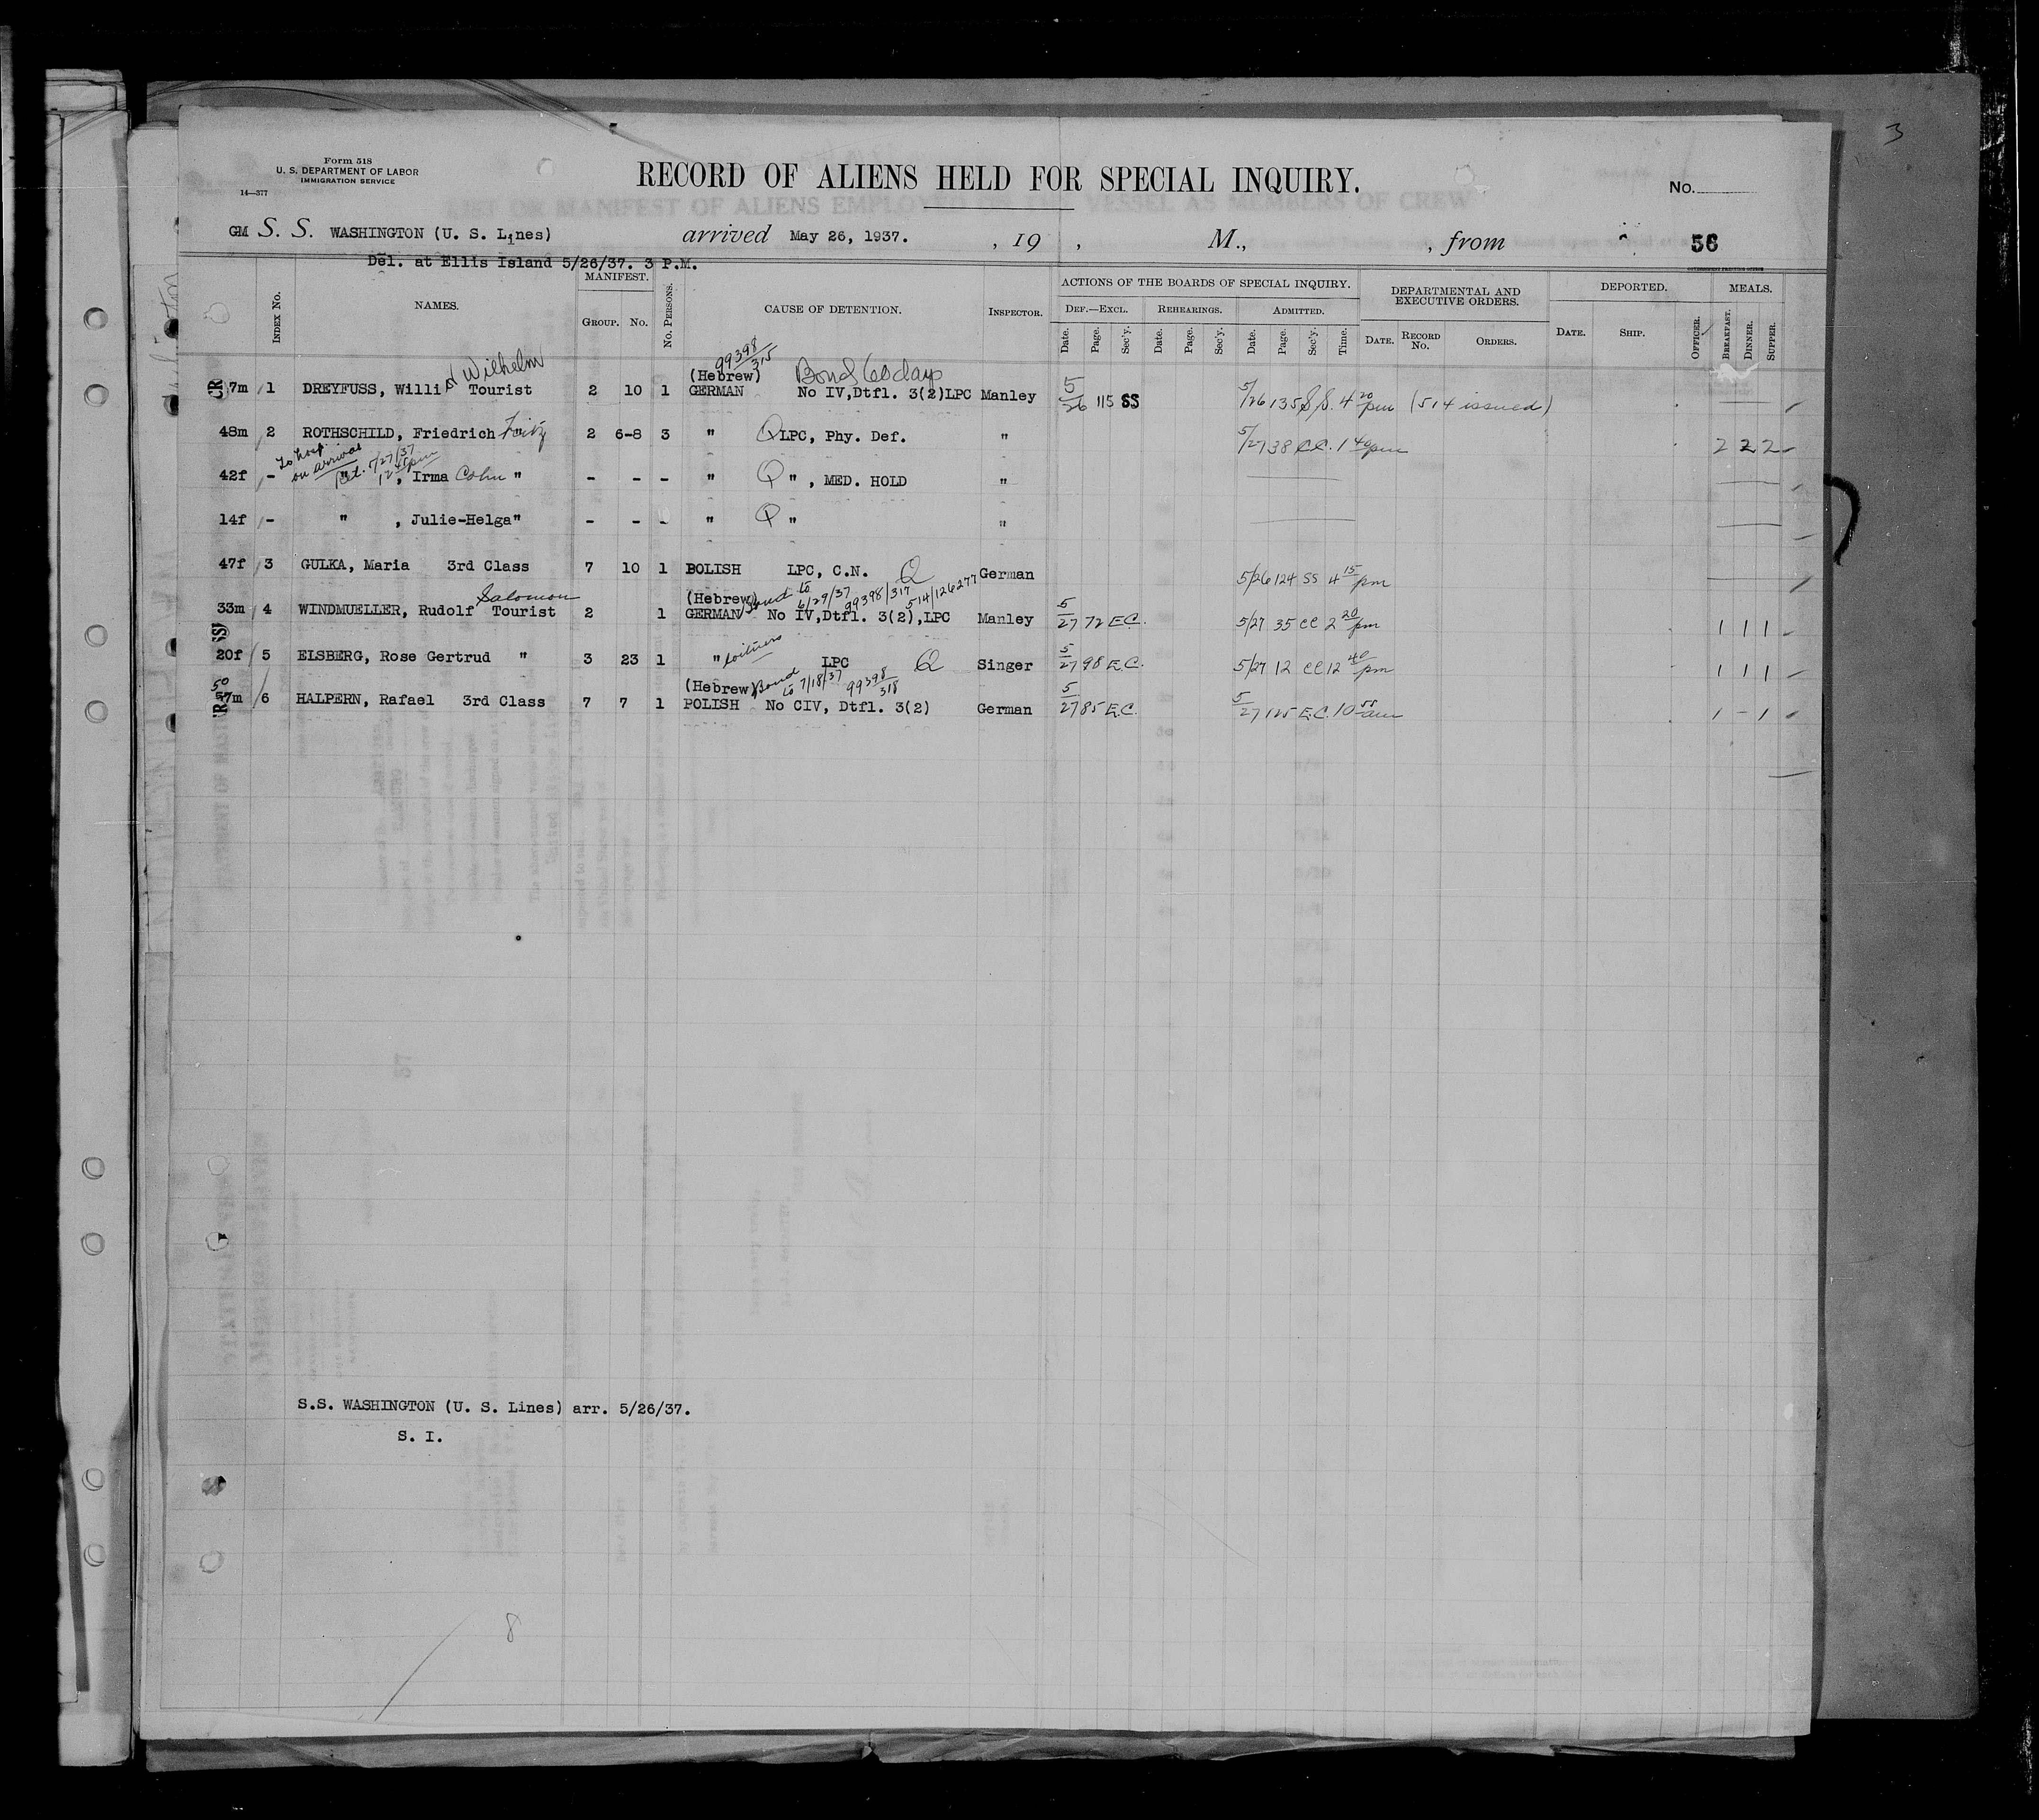 3
Form 518
U. S. DEPARTMENT OF LABOR
IMMIGRATION SERVICE
14—377
RECORD OF ALIENS HELD FOR SPECIAL INQUIRY.
No.
GM S. S. WASHINGTON (U. S. Lines) arrived May 26, 1937. , 19 , M., , from 56
Del. at Ellis Island 5/26/37. 3 P.M.
INDEX No. NAMES. MANIFEST. GROUP. No. No. PERSONS. CAUSE OF DETENTION. INSPECTOR. ACTIONS OF THE BOARDS OF SPECIAL INQUIRY. DEPARTMENTAL AND EXECUTIVE ORDERS. DEPORTED. MEALS.
DEF.—EXCL. REHEARINGS. ADMITTED.
Date. Page. Sec'y. Date. Page. Sec'y. Date. Page. Sec'y. Time. DATE. RECORD No. ORDERS. DATE. SHIP. OFFICER. BREAKFAST. DINNER. SUPPER.
Wilhelm 99398/315
(Hebrew) Bond 60 days
7m 1 DREYFUSS, Willi Tourist 2 10 1 GERMAN No IV,Dtfl. 3(2)LPC Manley 5/26 115 SS 5/26 135 S.S. 4 20 pm (514 issued)
48m 2 ROTHSCHILD, Friedrich Fritz " 2 6-8 3 " Q LPC, Phy. Def. " 5/27 38 CC. 1 40 pm 2 2 2
to hosp on arrival
42f - " , Irma Cohn " - - - " Q " , MED. HOLD "
14f - " , Julie-Helga" - - - " Q " "
47f 3 GULKA, Maria 3rd Class 7 10 1 POLISH LPC, C.N. Q German 5/26 124 SS 4 15 pm
Salomon (Hebrew) Bond to 6/29/37 99398/317 514/126277
33m 4 WINDMUELLER, Rudolf Tourist 2 1 GERMAN No IV,Dtfl. 3(2),LPC Manley 5/27 72 E.C. 5/27 35 CC 2 20 pm 1 1 1
SS
20f 5 ELSBERG, Rose Gertrud " 3 23 1 " LPC Q Singer 5/27 98 E.C. 5/27 12 CC 12 40 pm 1 1 1
50 (Hebrew) Bond to 7/18/37 99398/318
57m 6 HALPERN, Rafael 3rd Class 7 7 1 POLISH No CIV, Dtfl. 3(2) German 5/27 85 E.C. 5/27 125 E.C. 10 55 am 1 - 1
S.S. WASHINGTON (U. S. Lines) arr. 5/26/37.
S. I.
8